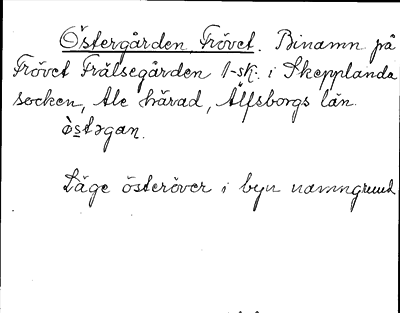 Östergården, Frövet. Binamn på
Frövet Frälsegården 1-sk. i Skepplanda
socken, Ale härad, Älfsborgs län.
östəgan.
Läge österöver i byn namngrund